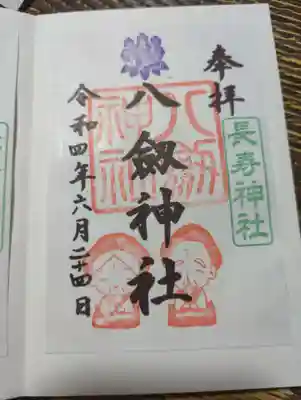 奉拝
長寿神社
八剱神社
八剱神社
令和四年六月二十四日